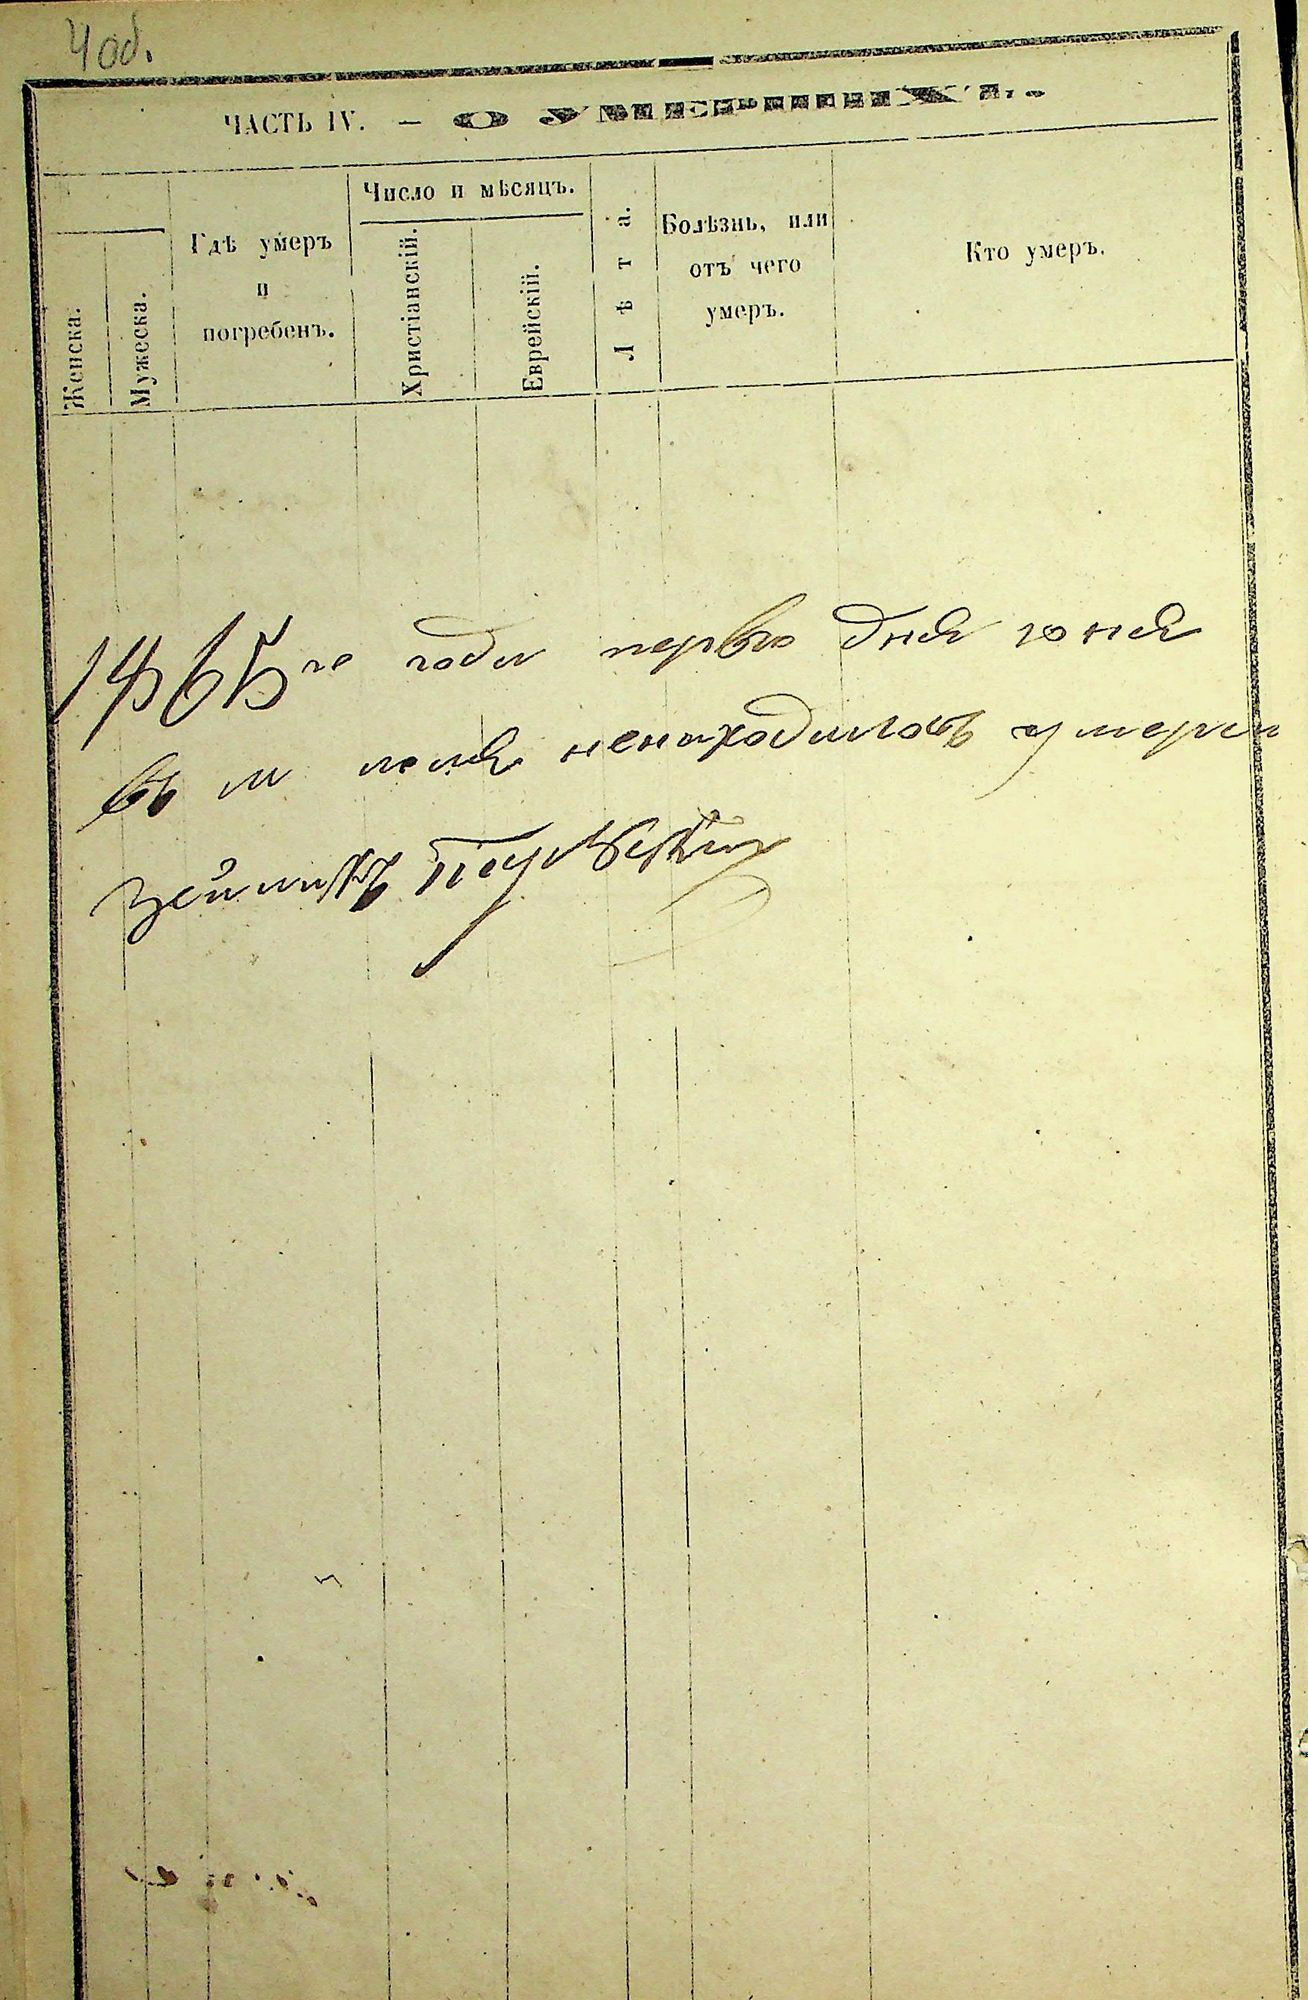 4 об.
ЧАСТЬ IV. — О УМЕРШИХЪ.
Женска.
Мужеска.
Гдѣ умеръ
и
погребенъ.
Число и мѣсяцъ.
Христіанскій.
Еврейскій.
Лѣта.
Болѣзнь, или
отъ чего
умеръ.
Кто умеръ.
1865го года перваго дня юня
въ м ненаходилось умерш